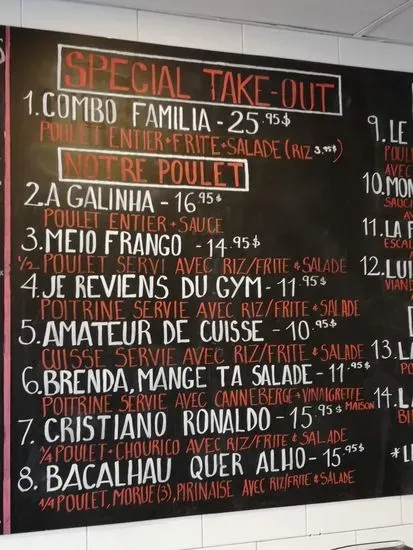 SPECIAL TAKE-OUT
1. COMBO FAMILIA - 25.95$
POULET ENTIER + FRITE + SALADE (RIZ 3.95$)
NOTRE POULET
2. A GALINHA - 16.95$
POULET ENTIER + SAUCE
3. MEIO FRANGO - 14.95$
1/2 POULET SERVI AVEC RIZ/FRITE & SALADE
4. JE REVIENS DU GYM - 11.95$
POITRINE SERVIE AVEC RIZ/FRITE & SALADE
5. AMATEUR DE CUISSE - 10.95$
CUISSE SERVIE AVEC RIZ/FRITE & SALADE
6. BRENDA, MANGE TA SALADE - 11.95$
POITRINE SERVIE AVEC CANNEBERGE + VINAIGRETTE MAISON
7. CRISTIANO RONALDO - 15.95$
1/4 POULET + CHOURICO AVEC RIZ/FRITE & SALADE
8. BACALHAU QUER ALHO - 15.95$
1/4 POULET, MORUE(3), PIRINAISE AVEC RIZ/FRITE & SALADE
9. LE
POUL
AVEC
10. MON
SAUC
AVEC
11. LA F
ESCAL
AVEC
12. LUI
VIAND
13. LA
PO
14. LA
BI
*LE